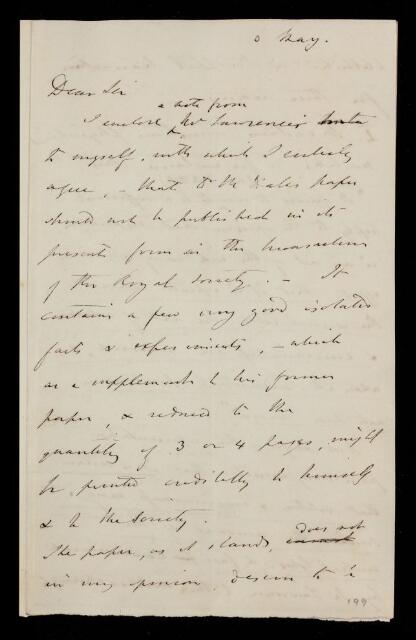 May.
Dear Sir
a note from
I enclose Mr Lawrence's
to myself, with which I entirely
agree, – that Mr paper
should not be published in its
present form in the Transactions
of the Royal Society. – It
contains a few very good isolated
facts & experiments, – which
as a supplement to his former
paper, & reduced to the
quantity of 3 or 4 pages, might
be printed creditably to himself
& to the Society.
does not
The paper, as it stands, cannot
in my opinion deserve to be
199